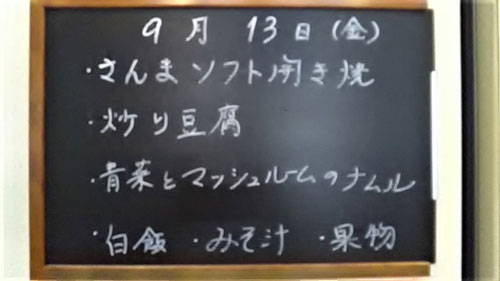 9月 13日(金)
・さんまソフト開き焼
・炒り豆腐
・青菜とマッシュルームのナムル
・白飯 ・みそ汁 ・果物